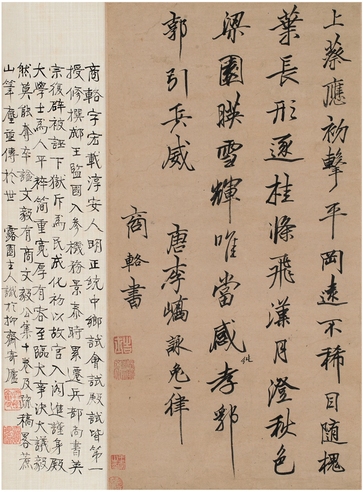 上蔡應初擊平岡遠不稀目隨槐
葉長形逐桂條飛漢月澄秋色
梁園暎雪輝唯當感孝郛
郭引兵威 唐李嶠詠兔律
商輅書
商輅字宏載淳安人明正統中鄉試會試殿試皆第一
授修撰郕王監國入參機務景泰時累遷兵部尚書英
宗復辟被誣下獄斥爲民成化初以故官入閣進謹身殿
大學士爲人平粹簡重寬厚有容至臨大事決大議毅
然莫能奪卒諡文毅有商文毅公集卷及稿畧蔗
山筆麈並傳於世 主人識於抑齋寄廬